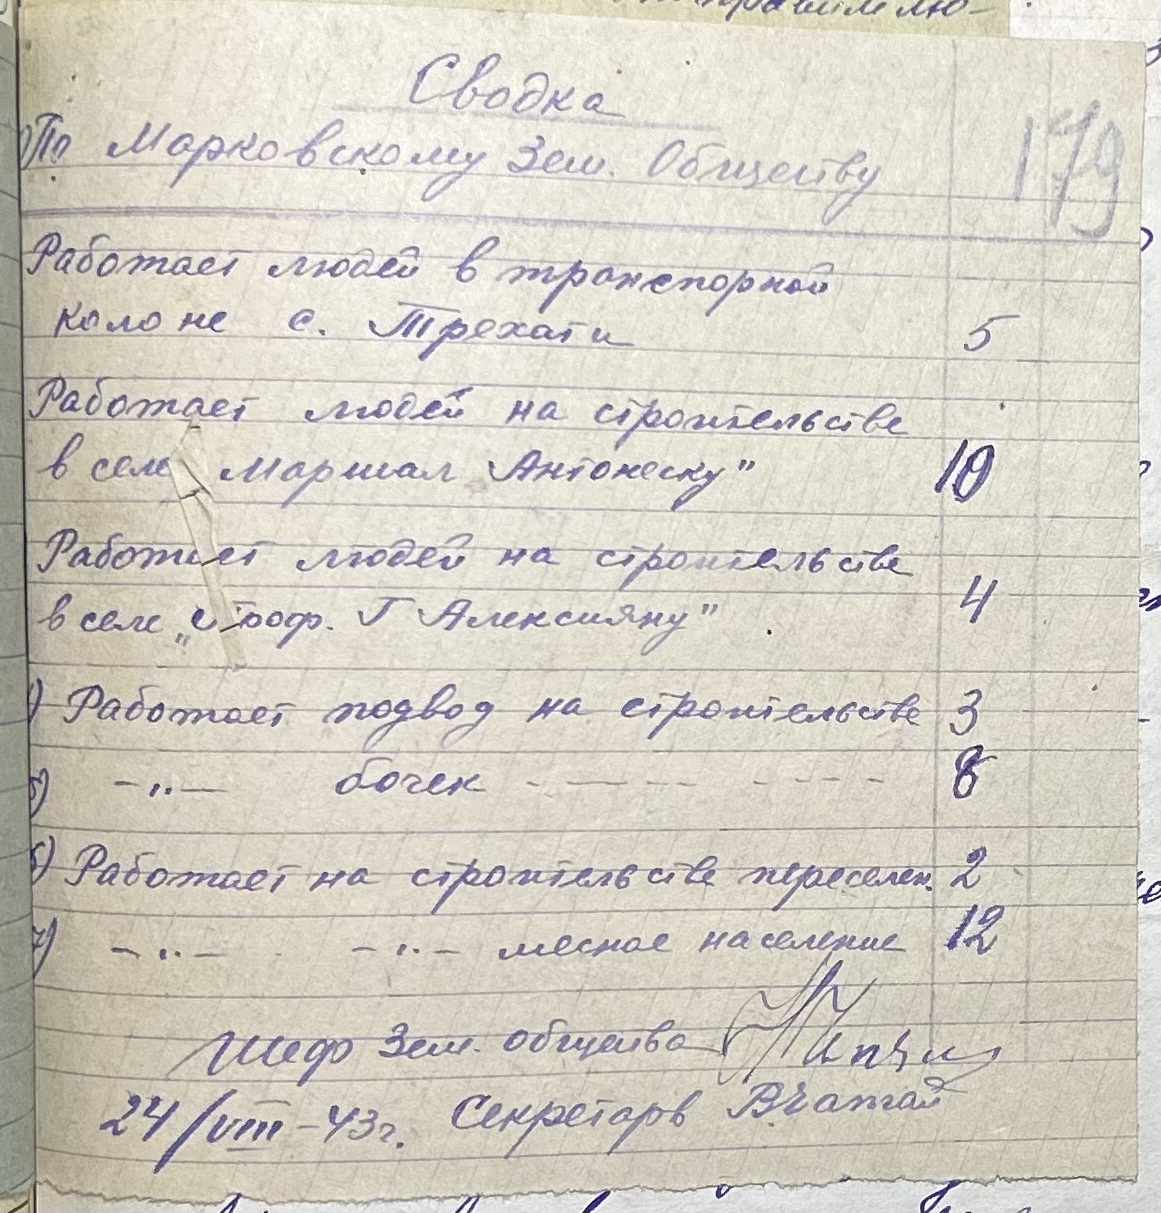 Сводка
По Марковскому Зем. Обществу
179
Работает людей в транспорной
колоне с. Трехати 5
Работает людей на строительстве
в селе Маршал Антонеску" 10
Работает людей на строительстве
в селе „Проф. Г Алексияну" 4
Работает подвод на строительстве 3
5) –„– бочек – – – – – – – 8
6) Работает на строительстве переселен. 2
7) –„– –„– месное население 12
Шеф Зем. общества
24/VIII–43г. Секретарь